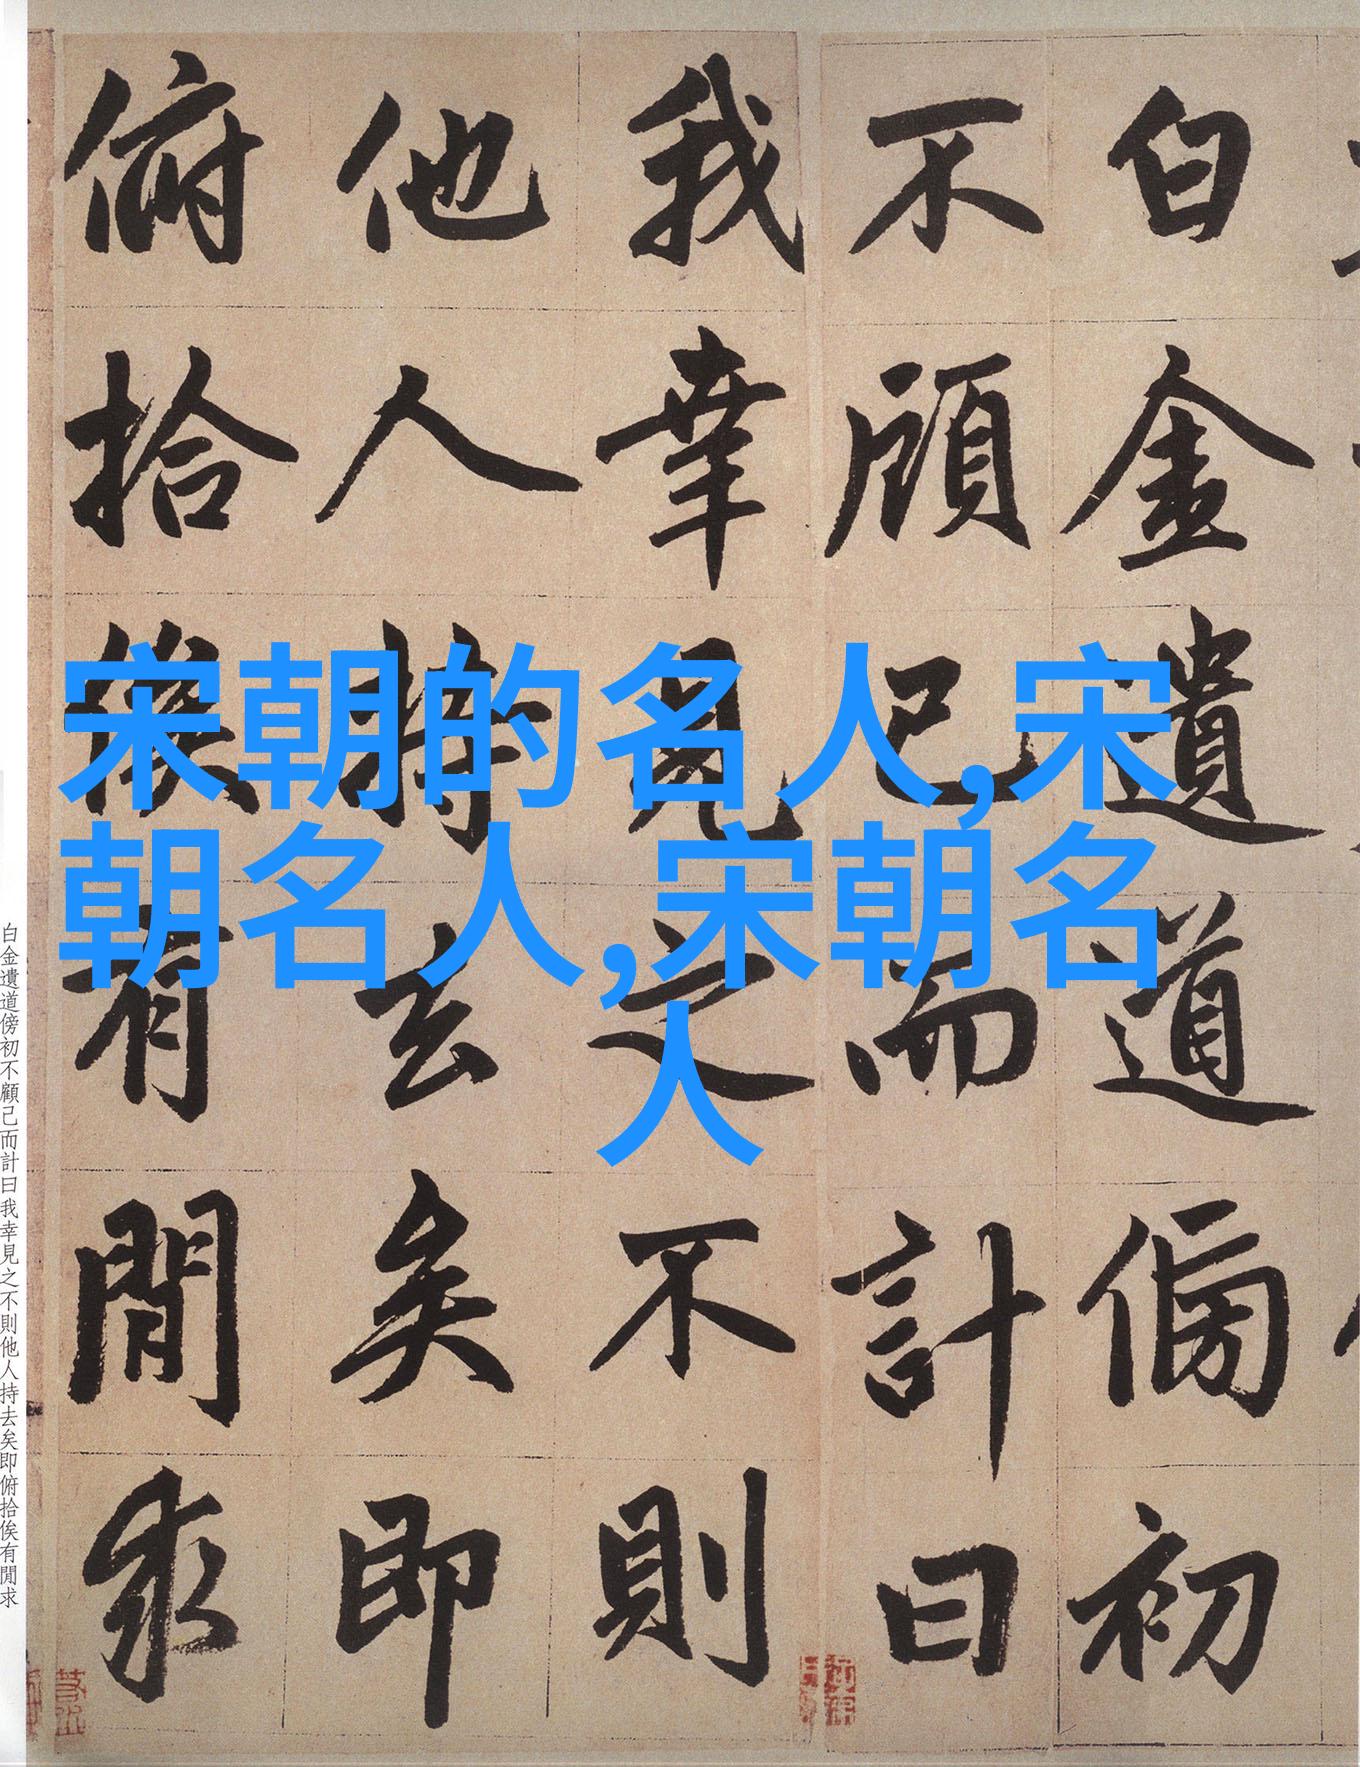 白金遺道傍初
不顧已而計曰
我幸見之不則
他人持去矣即
俯拾俟有閒求
宋朝的名人,宋
朝名人,宋朝名
人
白金遺道傍初不顧已而計曰我幸見之不則他人持去矣即俯拾俟有閒求